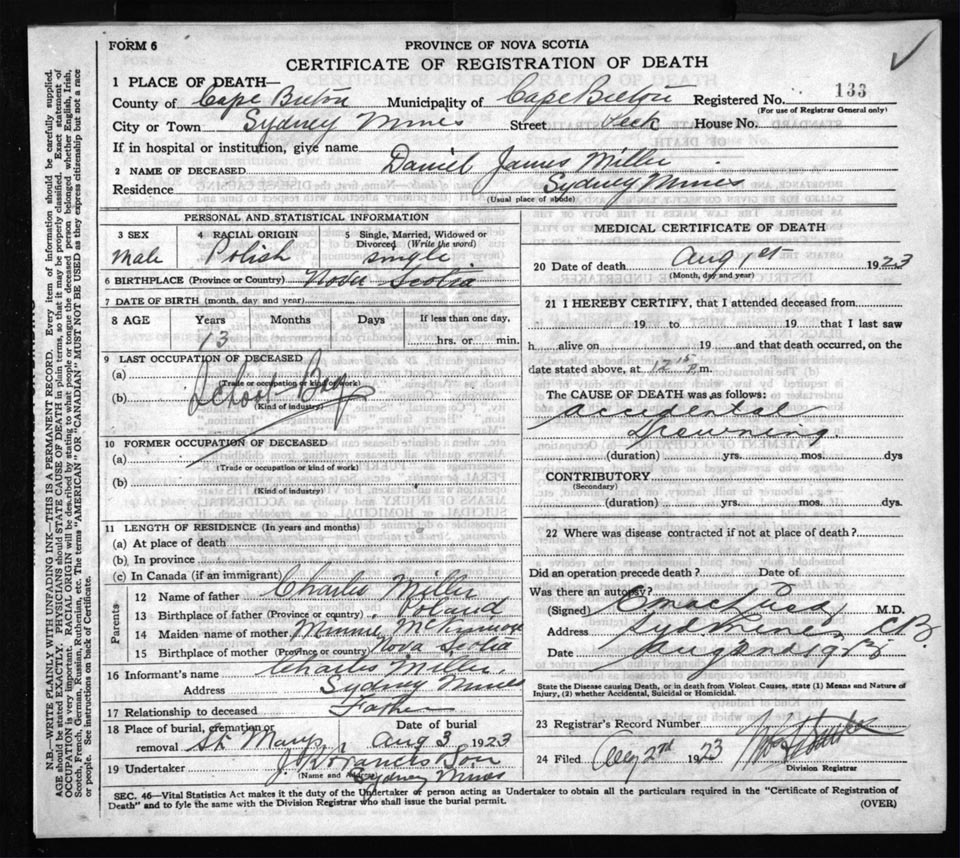 FORM 6
PROVINCE OF NOVA SCOTIA
CERTIFICATE OF REGISTRATION OF DEATH
1 PLACE OF DEATH—
County of Cape Breton Municipality of Cape Breton Registered No. 133
(For use of Registrar General only)
City or Town Sydney Mines Street House No.
If in hospital or institution, give name
2 NAME OF DECEASED Daniel James Miller
Residence Sydney Mines
(Usual place of abode)
PERSONAL AND STATISTICAL INFORMATION
3 SEX 4 RACIAL ORIGIN 5 Single, Married, Widowed or Divorced (Write the word)
Male Polish single
6 BIRTHPLACE (Province or Country) Nova Scotia
7 DATE OF BIRTH (month, day, and year)
8 AGE Years Months Days If less than one day,
13 hrs. or min.
9 LAST OCCUPATION OF DECEASED
(a) School Boy
(Trade or occupation or kind of work)
(b)
(Kind of industry)
10 FORMER OCCUPATION OF DECEASED
(a)
(Trade or occupation or kind of work)
(b)
(Kind of industry)
11 LENGTH OF RESIDENCE (In years and months)
(a) At place of death
(b) In province
(c) In Canada (if an immigrant)
Parents
12 Name of father Charles Miller
13 Birthplace of father (Province or country) Poland
14 Maiden name of mother Minnie
15 Birthplace of mother (Province or country) Nova Scotia
16 Informant's name Charles Miller
Address Sydney Mines
17 Relationship to deceased Father
18 Place of burial, cremation or removal St Marys Date of burial Aug 3 1923
19 Undertaker
(Name and Address) Sydney Mines
MEDICAL CERTIFICATE OF DEATH
20 Date of death Aug 1st 1923
(Month, day and year)
21 I HEREBY CERTIFY, that I attended deceased from
19 to 19 that I last saw
h alive on 19 and that death occurred, on
date stated above, at 12 15 P.m.
The CAUSE OF DEATH was as follows:
Accidental
Drowning.
(duration) yrs. mos. dys
CONTRIBUTORY
(Secondary)
(duration) yrs. mos. dys.
22 Where was disease contracted if not at place of death?
Did an operation precede death? Date of
Was there an autopsy?
(Signed) M.D.
Address Syd Mines, C.B.
Date
State the Disease causing Death, or in death from Violent Causes, state (1) Means and Nature of
Injury, (2) whether Accidental, Suicidal or Homicidal.
23 Registrar's Record Number
24 Filed Aug 2nd 1923
Division Registrar
SEC. 46—Vital Statistics Act makes it the duty of the Undertaker or person acting as Undertaker to obtain all the particulars required in the "Certificate of Registration of
Death" and to fyle the same with the Division Registrar who shall issue the burial permit.
(OVER)
N.B.—WRITE PLAINLY WITH UNFADING INK—THIS IS A PERMANENT RECORD. Every item of information should be carefully supplied.
AGE should be stated EXACTLY. PHYSICIANS should STATE CAUSE OF DEATH in plain terms, so that it may be properly classified. Exact statement of
OCCUPATION is very important. RACIAL ORIGIN will be described by stating to what people or tongue the deceased person belonged whether English, Irish,
Scotch, French, German, Russian, Ruthenian, etc. The terms "AMERICAN" OR "CANADIAN" MUST NOT BE USED as they express citizenship but not a race
or people. See instructions on back of Certificate.